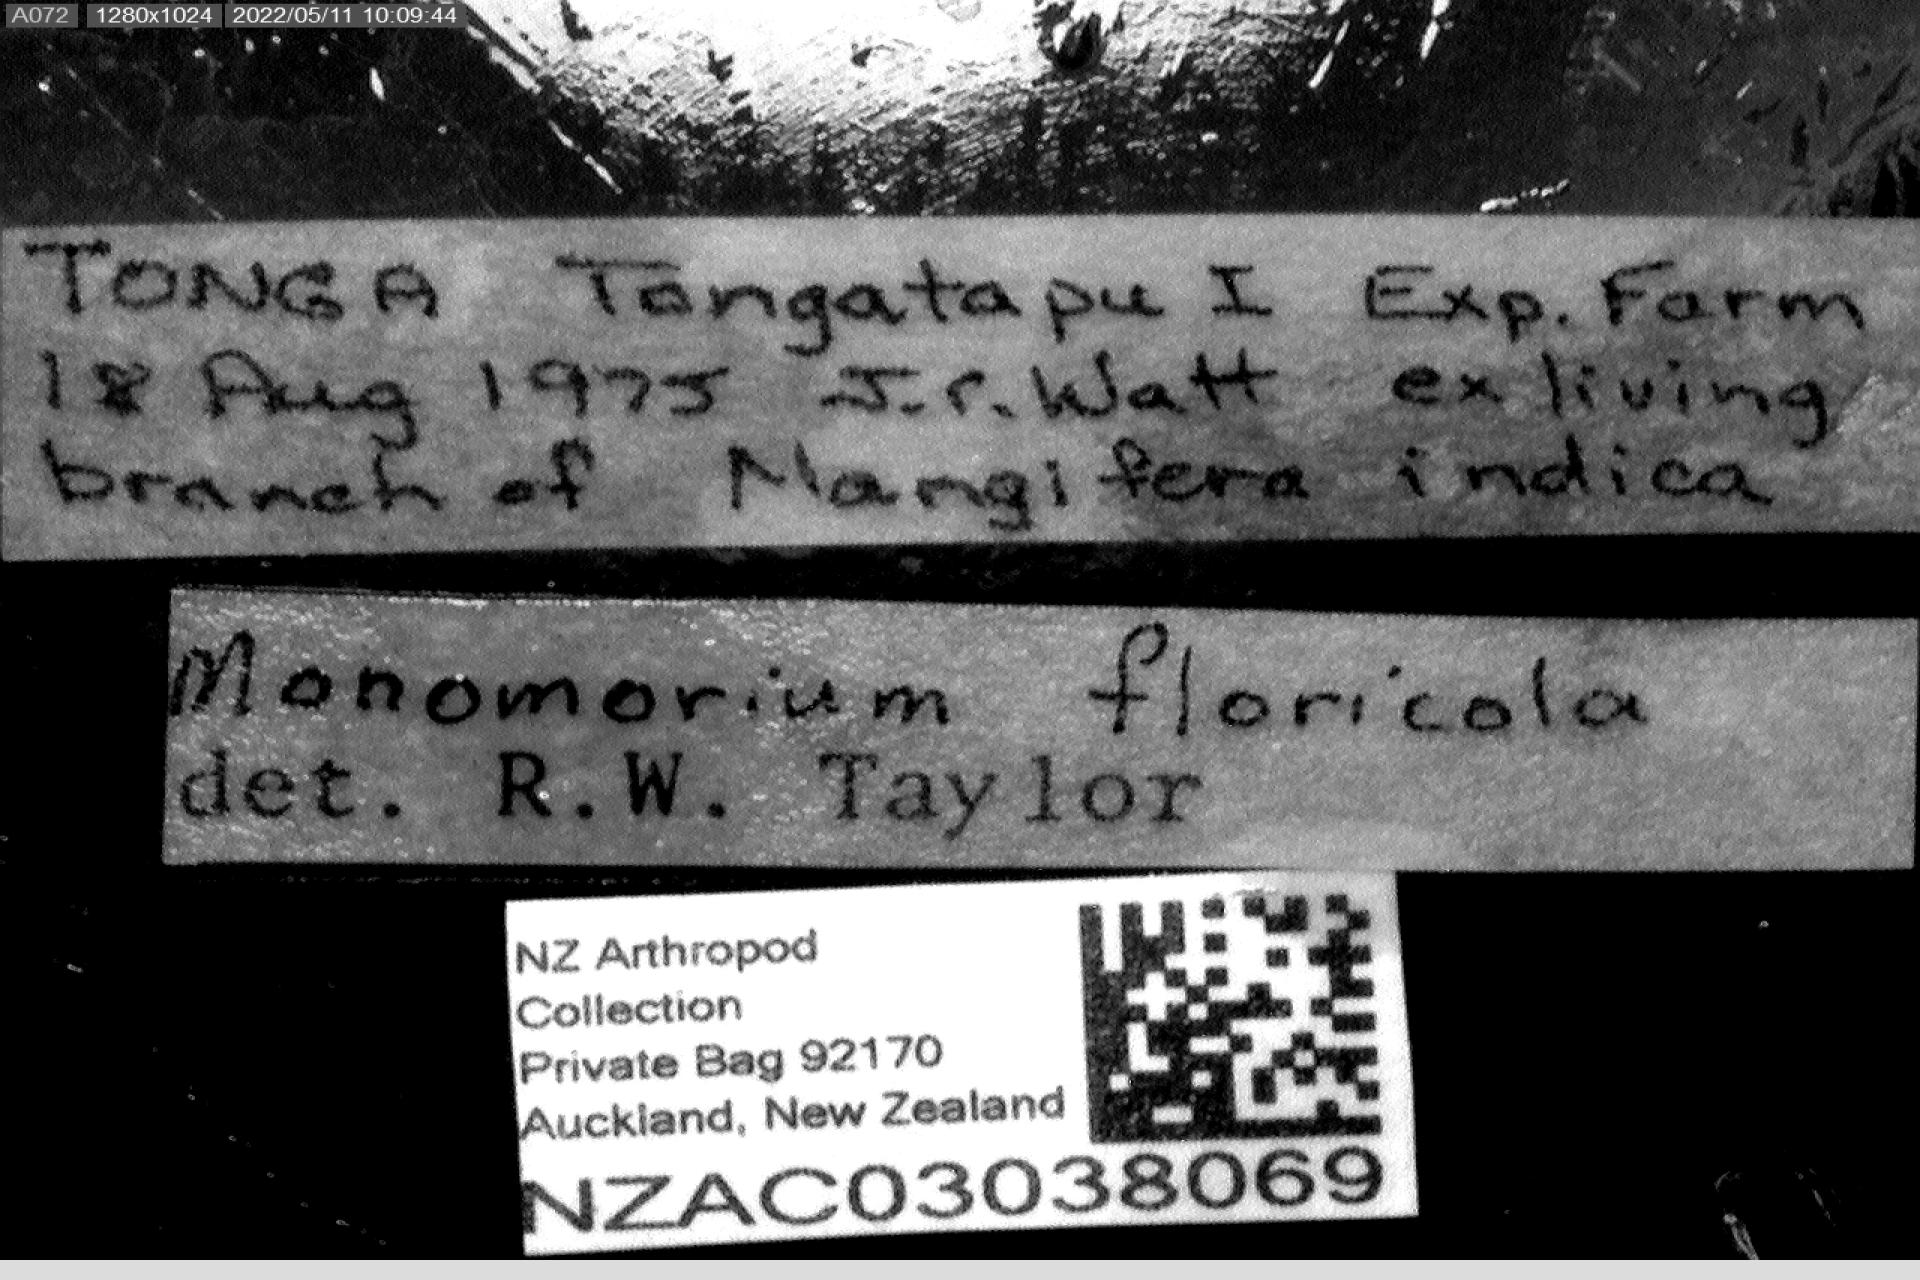 A072 1280x1024 2022/05/11 10:09:44
TONGA Tongatapu I Exp. Farm
18 Aug 1975 J.C. Watt ex living
branch of Mangifera indica
Monomorium floricola
det. R.W. Taylor
NZ Arthropod
Collection
Private Bag 92170
Auckland, New Zealand
NZAC03038069